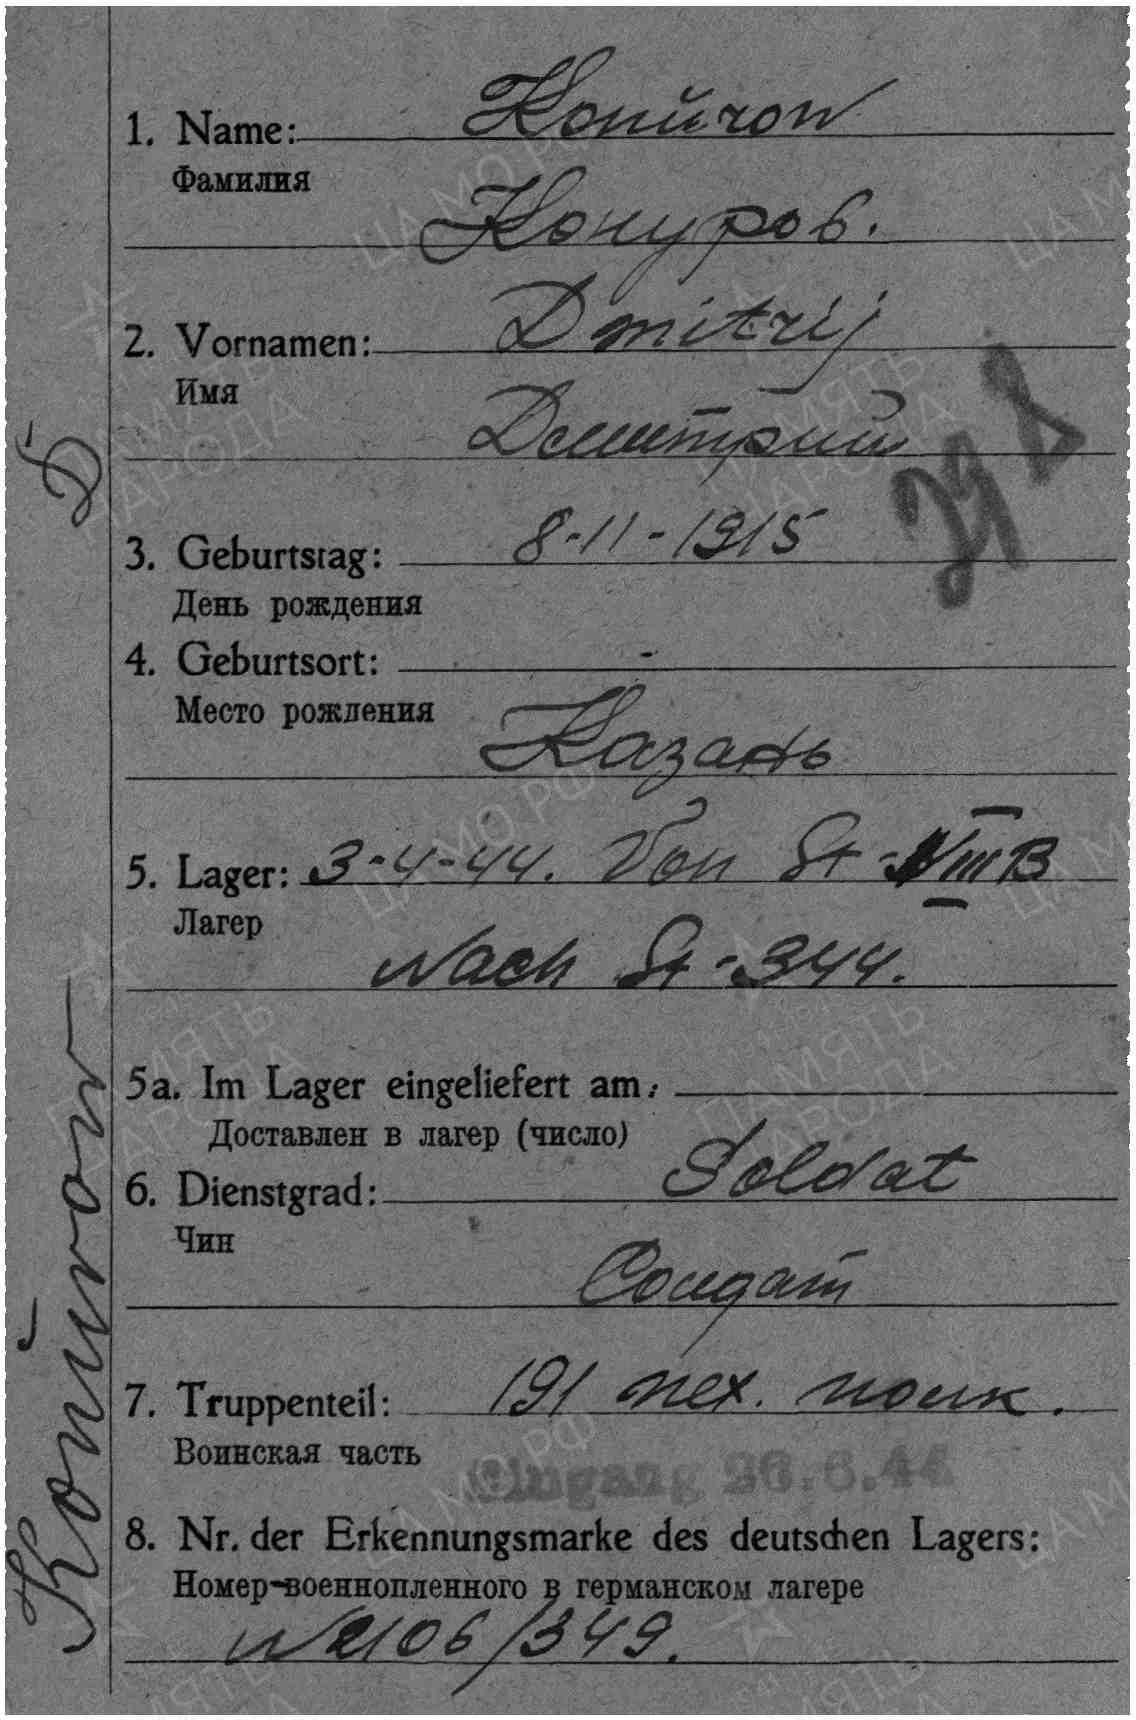 1. Name: Konŭrow
Фамилия
Конуров.
2. Vornamen: Dmitrij
Имя
Дмитрий
3. Geburtstag: 8-11-1915
День рождения
4. Geburtsort: -
Место рождения
Казань
5. Lager: 3-4-44. Von St - VIII B
Лагер
Nach St - 344.
5a. Im Lager eingeliefert am:
Доставлен в лагер (число)
6. Dienstgrad: Soldat
Чин
Солдат
7. Truppenteil: 191 пех. полк.
Воинская часть
Eingang 26.6.44
8. Nr. der Erkennungsmarke des deutschen Lagers:
Номер военнопленного в германском лагере
№ 2106/349.
Konŭrow
ЦА МО РФ
ПАМЯТЬ
НАРОДА